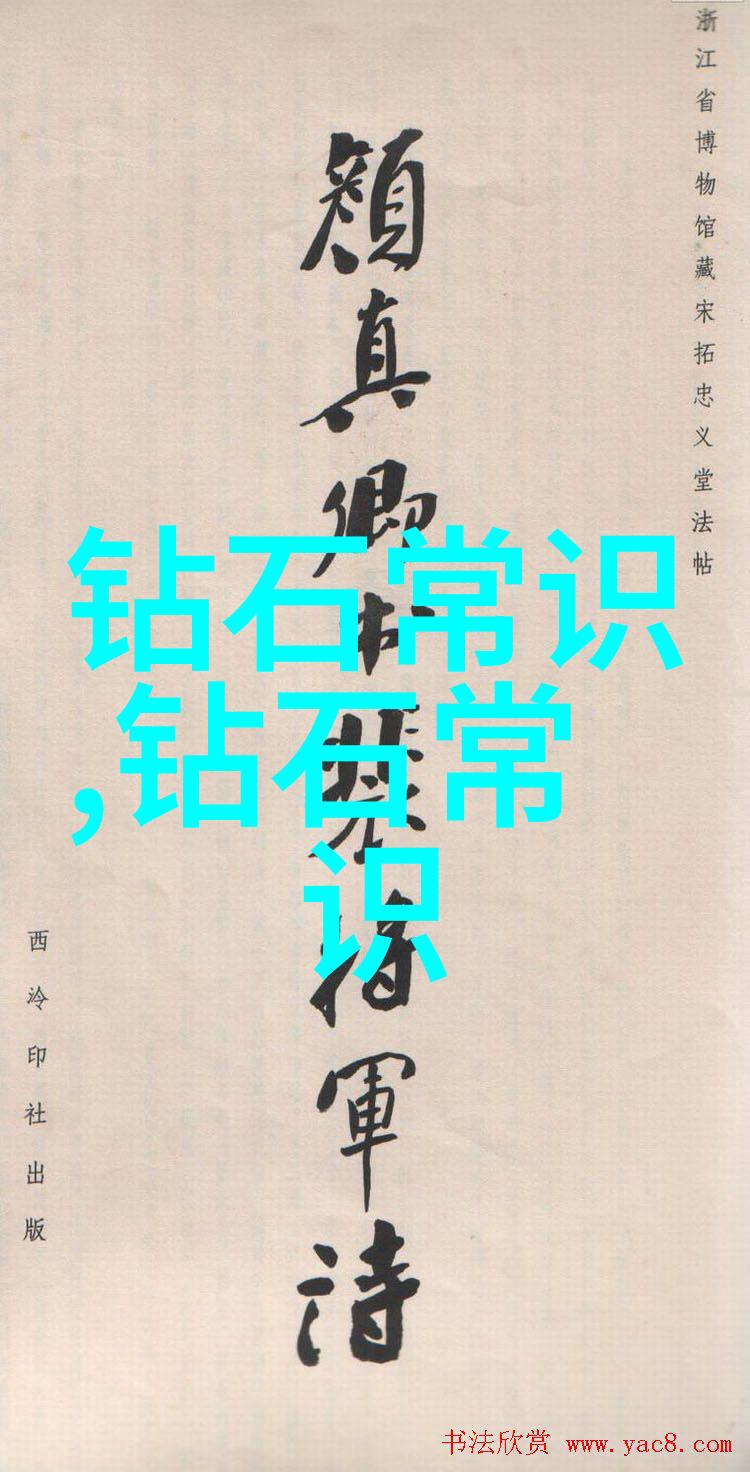 浙江省博物馆藏宋拓忠义堂法帖
顔真卿书裴将軍诗
西泠印社出版
钻石常识
,钻石常
识
书法欣赏 www.yac8.com